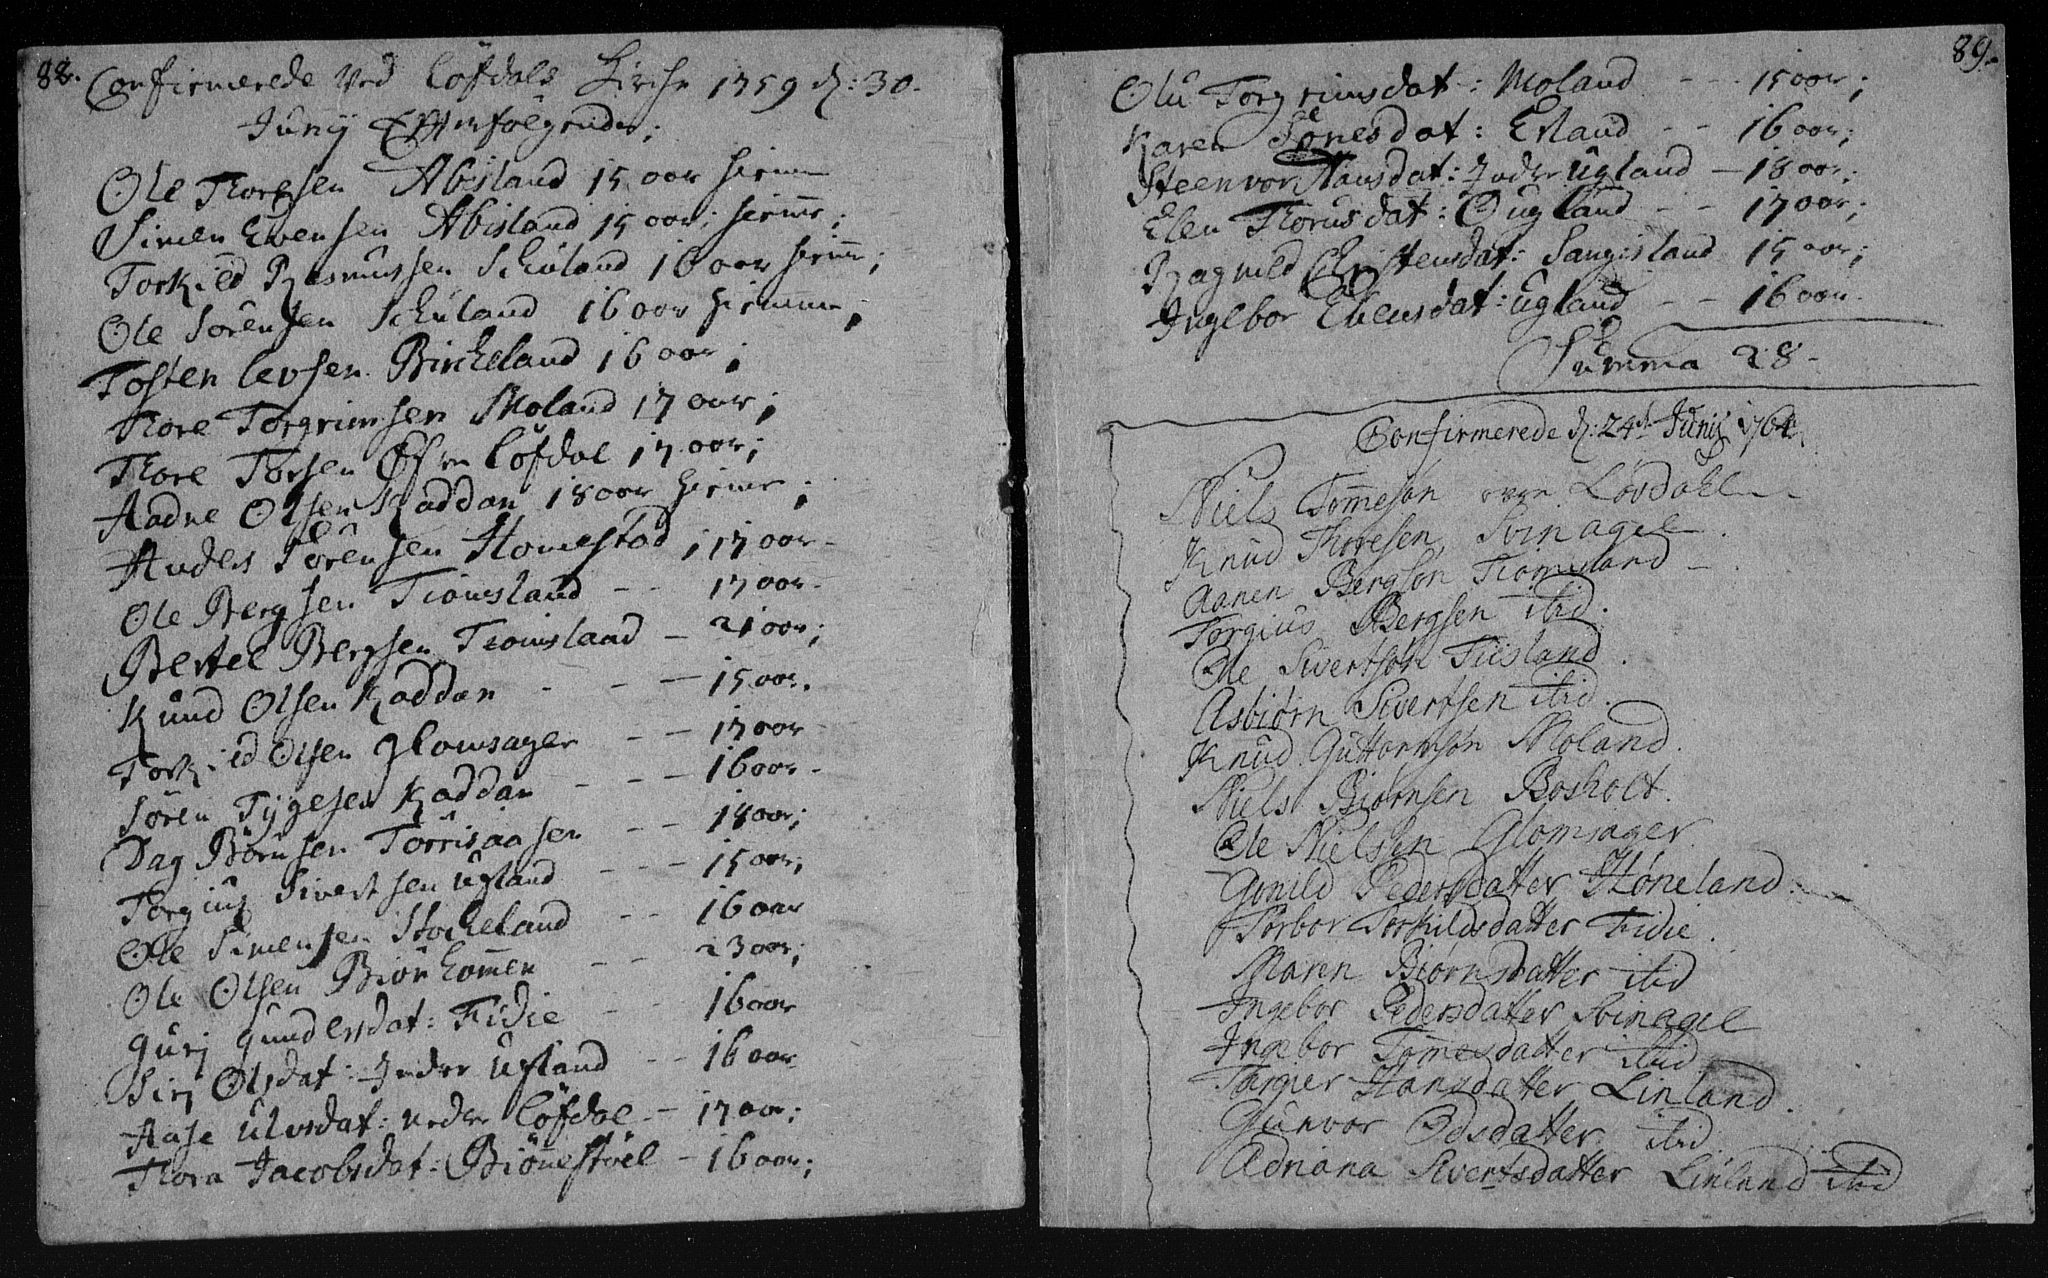 88.
Confirmerede Ved Löfdals Kirche 1759 d: 30.
Junij Efterfölgende;
Ole Thoresen Abisland 15 aar
Simen Evensen Abisland 15 aar;
Torkied Rasmussen Schuland 16 aar
Ole Sörensen Schuland 16 aar
Tosten Levsen Bircheland 16 aar;
Thore Torgrimsen Moland 17 aar;
Thore Torsen Öfre Löfdal 17 aar;
Aadne Olsen Raddan 18 aar
Anders Sörensen Homestad; 17 aar
Ole Bergsen Tiomsland - - 17 aar
Bertel Bergsen Tiomsland - 21 aar;
Knud Olsen Kaddan - - - 15 aar.
Torkied Olsen Glomsager - - 17 aar
Sören Tÿgesen Kaddan - - - 16 aar
Dag Börnsen Torrisaasen - - 18 aar;
Torgius Sivertsen Ugland - - 15 aar;
Ole Simensen Stocheland - - 16 aar
Ole Olsen Biörkommen - - 23 aar;
Gurj Gundersdat: Fidie - 16 aar
Sirj Olsdat: Indre Ugland - - 16 aar
Aase Ulvsdat: Nedre Löfdal - 17 aar;
Thora Jacobsdat: Biönnestöel - 16 aar;
89.
Olu Torgrimsdat: Moland - - - 15 aar;
Karen Tönesdat: Erland - - 16 aar;
Steenvor Hansdat: Indre Ugland - 18 aar;
Elen Thorusdat: Ougland - - 17 aar;
Ragnild Christensdat: Sangisland 15 aar;
Ingebor Evensdat: Ugland - - 16 aar
Summa 28
Confirmerede d: 24de Junij 1764.
Niels Tommesøn Løvdahl
Knud Thoresen Svinagel
Aanen Bergsøn Tiomsland
Torgius Bergsen ibid.
Ole Sivertsøn Fiesland.
Asbiørn Sivertsen ibid.
Knud Guttormsøn Moland.
Niels Biørnsen Bosholt.
Ole Nielsen Glomsager
Gonild Pedersdatter Høneland.
Torbor Torkildsdatter Fidie.
Maren Biørnsdatter ibid
Ingebor Pedersdatter Svinagel
Ingebor Tommesdatter ibid
Torgier Hansdatter Linland.
Gunvor Odsdatter ibid
Adriana Sivertsdatter Linland ibid